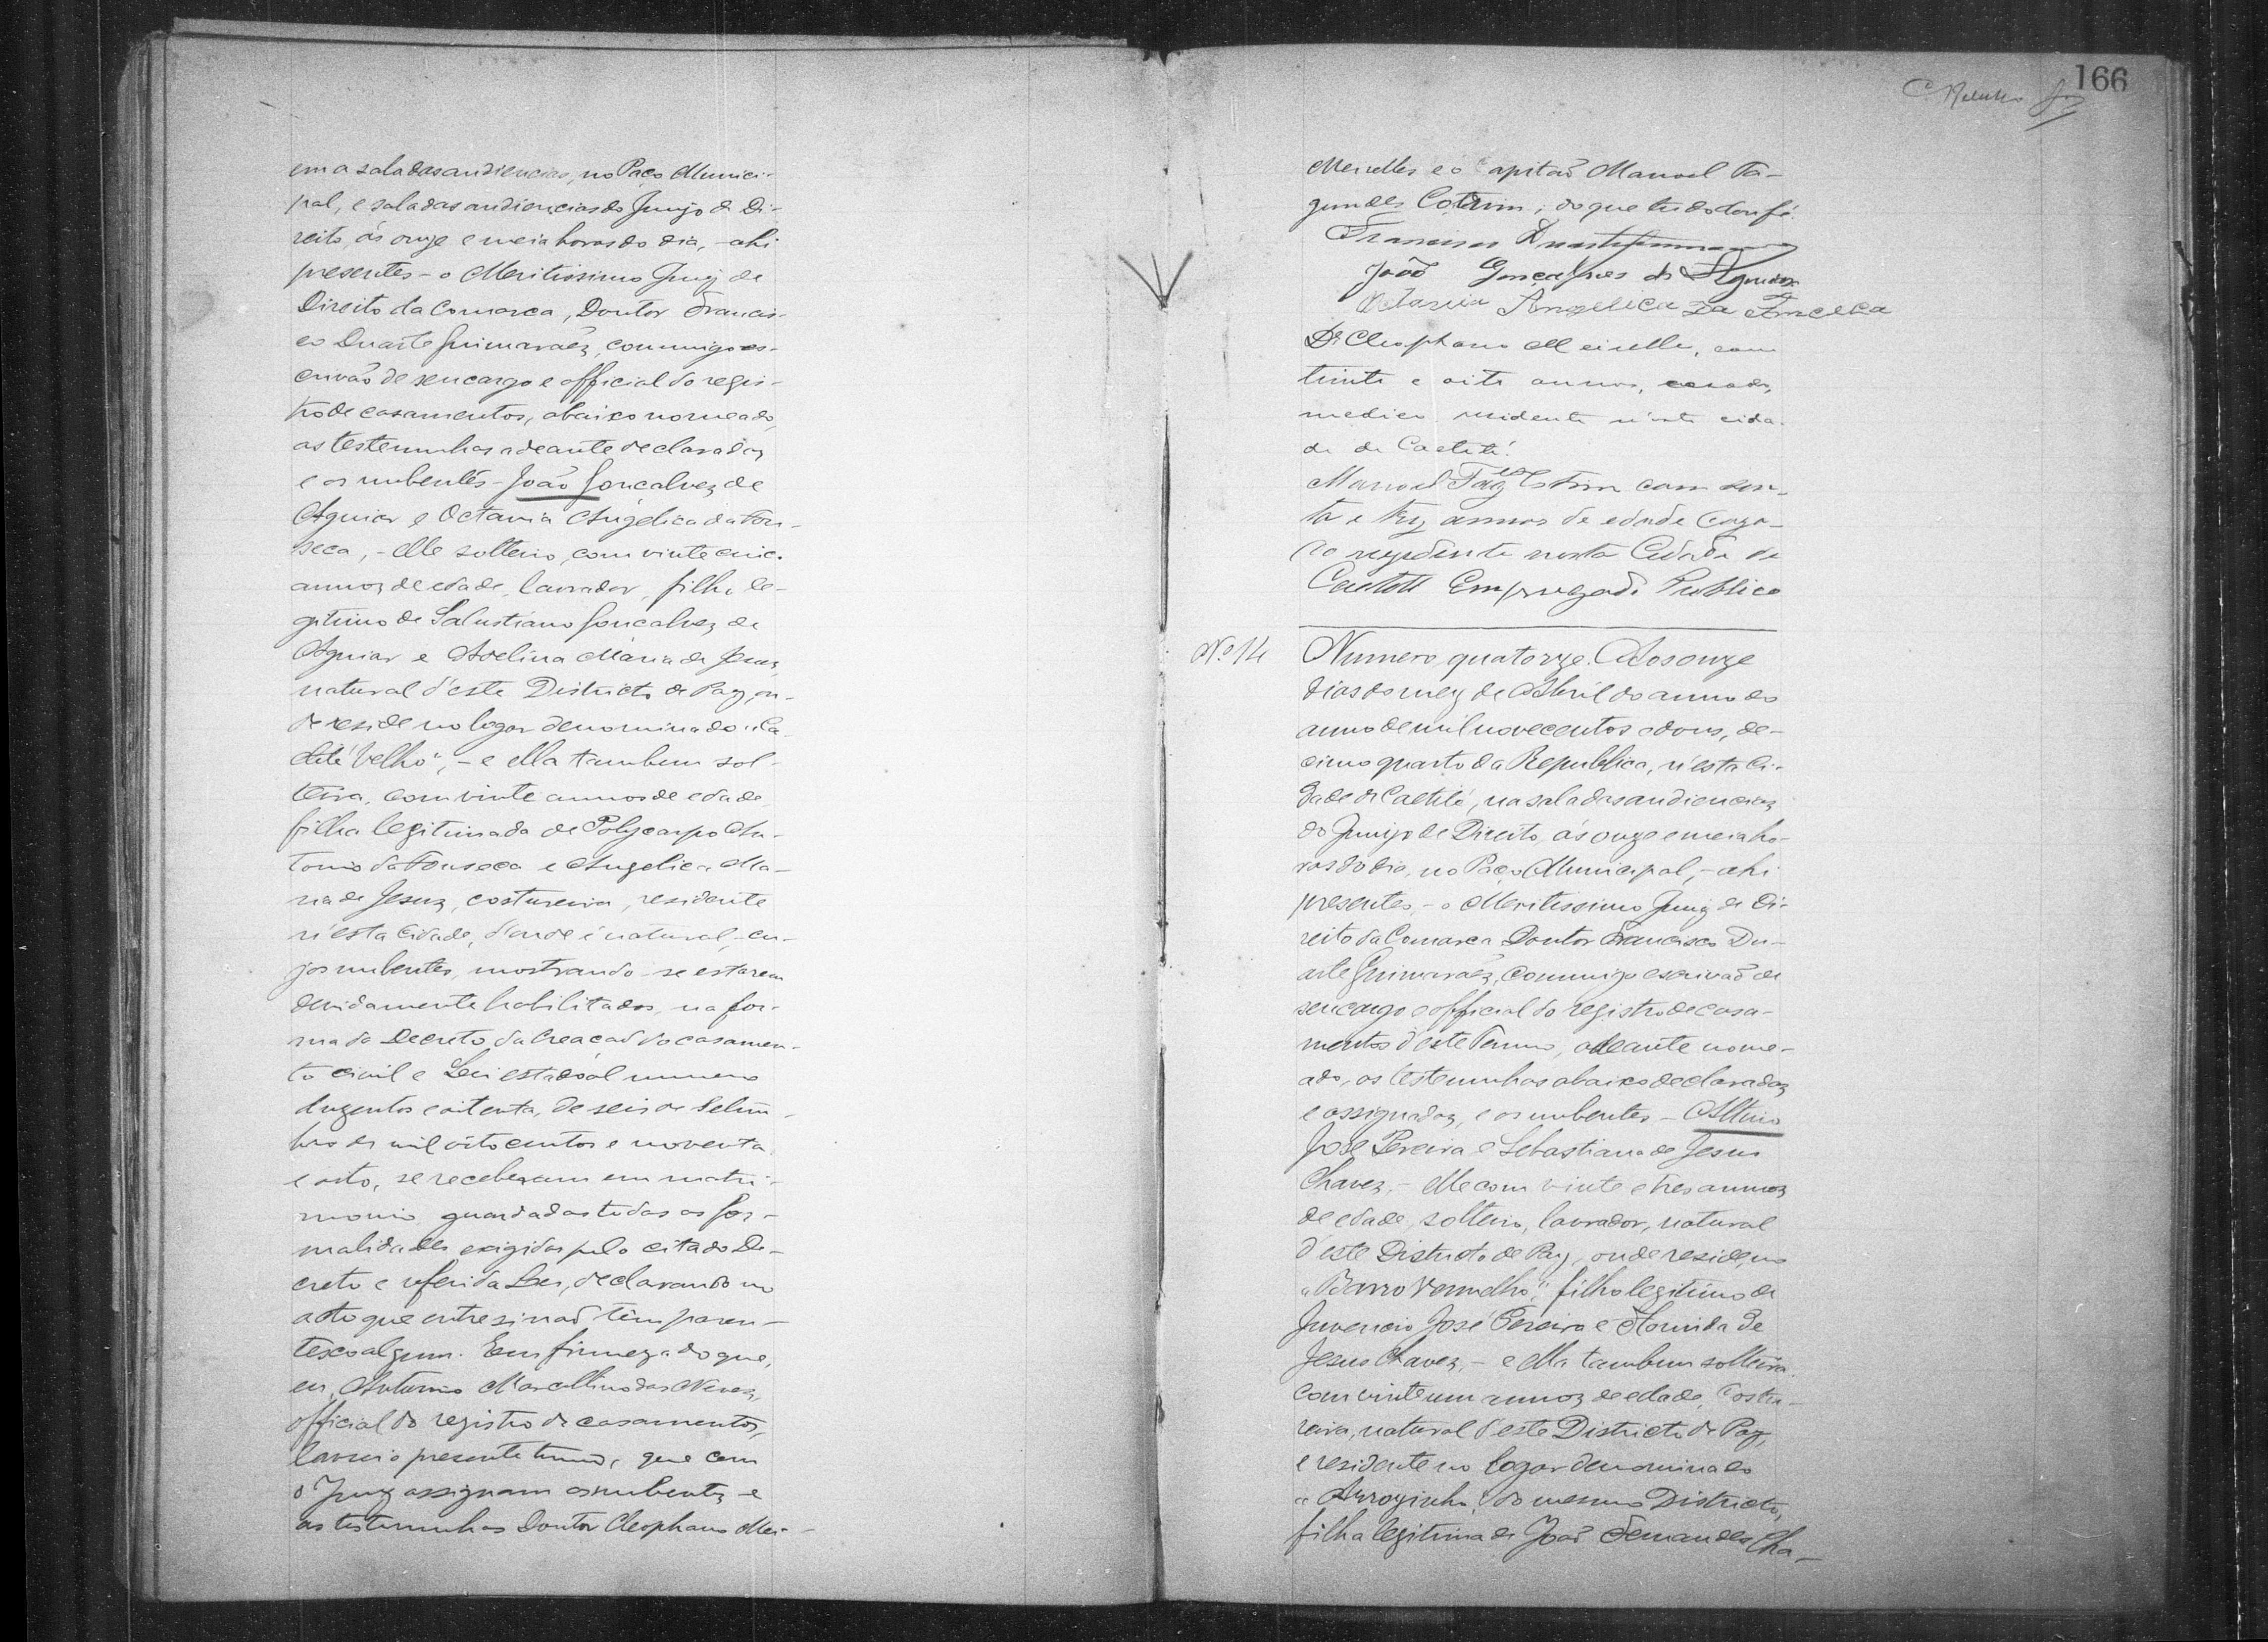 em a sala das audiencias, no Paço Munici-
pal, e sala das audiencias do Juizo de Di-
reito, ás onze e meia horas do dia, - ahi
presentes - o Meritissimo Juiz de
Direito da Comarca, Doutor Francis-
co Duarte Guimarães, commigo es-
crivão de seu cargo e official do regis-
tro de casamentos, abaixo nomeado,
as testemunhas adeante declaradas
e os nubentes - João Gonçalves de
Aguiar e Octavia Angelica da Fon-
seca, - elle solteiro, com vinte cinco
annos de edade, lavrador, filho le-
gitimo de Salustiano Gonçalves de
Aguiar e Avelina Maria de Jesus,
natural d'este Districto de Paz, on-
de reside no logar denominado "Ca-
etité Velho", - e ella tambem sol-
teira, com vinte annos de edade,
filha legitimada de Polycarpo An-
tonio da Fonseca e Angelica Ma-
ria de Jesus, costureira, residente
n'esta Cidade, d'onde é natural, - cu-
jos nubentes, mostrando-se estarem
devidamente habilitados, na for-
ma do Decreto da Creação do casamen-
to civil e Lei estadoal numero
duzentos e oitenta, de seis de Setem-
bro de mil oitocentos e noventa
e oito, se receberam em matri-
monio, guardadas todas as for-
malidades exigidas pelo citado De-
creto e referida Lei, declarando no
acto que entre si não têm paren-
tesco algum. Em firmeza do que,
eu, Antonio Marcellino das Neves,
official do registro de casamentos,
lavrei o presente termo, que com
o Juiz assignam os nubentes e
as testemunhas Doutor Cleophano Mei-
166
Meirelles e o Capitão Manoel Fa-
gundes Cotrim; do que tudo dou fé.
Francisco Duarte Guimarães
João Gonçalves de Aguiar
Octavia Angelica da Fonceca
Dr Cleophano Meirelles, com
trinta e oito annos, casado,
medico residente n'esta cida-
de de Caetité.
Manoel Fagdes Cotrim com
ta e trez annos de edade Caza-
do rezidente nesta Cidade de
Caetité Empregado Publico
No 14
Numero quatorze. Aos onze
dias do mez de Abril do anno do
anno de mil novecentos e dous, de-
cimo quarto da Republica, n'esta Ci-
dade de Caetité, na sala das audiencias
do Juizo de Direito, ás onze e meia ho-
ras do dia, no Paço Municipal, - ahi
presentes, - o Meritissimo Juiz de Di-
reito da Comarca Doutor Francisco Du-
arte Guimarães, commigo escrivão de
seu cargo e official do registro de casa-
mentos d'este Termo, adeante nome-
ado, as testemunhas abaixo declaradas
e assignadas, e os nubentes - Altino
José Pereira e Sebastiana de Jesus
Chaves, - elle com vinte e tres annos
de edade, solteiro, lavrador, natural
d'este Districto de Paz, onde reside, no
"Barro Vermelho", filho legitimo de
Juvencio José Pereira e Florinda de
Jesus Chaves, - e ella tambem solteira,
com vinte um annos de edade, costu-
reira, natural d'este Districto de Paz,
e residente no logar denominado
"Arrozinho" do mesmo Districto,
filha legitima de João Fernandes Cha-